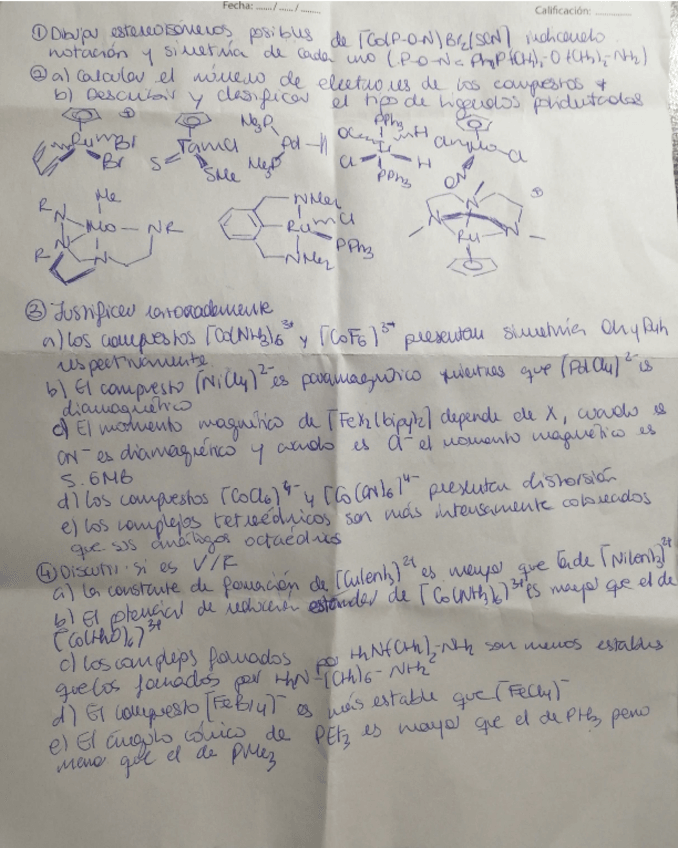 Fecha: ....../....../......
Calificación: ............
① Dibujar estereoisómeros posibles de [Co(P-O-N)Br2(SCN)] indicando
notación y simetría de cada uno (P-O-N = Ph2P(CH2)2-O-(CH2)2-NH2)
② a) Calcular el número de electrones de los compuestos
b) Describir y clasificar el tipo de ligandos polidentados
+ Me3P PPh3
Ru Br TaCl Pd-H OC H Cl
Br S SMe Me3P Cl Ir H PPh3 ON
R Me NMe2 +
N Mo NR Ru Cl N N
R N N PPh3 Ru
NMe2
③ Justificar razonadamente
a) Los compuestos [Co(NH3)6]3+ y [CoF6]3- presentan simetría Oh y
respectivamente.
b) El compuesto [NiCl4]2- es paramagnético mientras que [PdCl4]2- es
diamagnético
c) El momento magnético de [FeX2(bipy)2] depende de X, cuando es
CN- es diamagnético y cuando es Cl- el momento magnético es
5.6MB
d) Los compuestos [CoCl6]4- y [Co(CN)6]4- presentan distorsión
e) Los complejos tetraédricos son más intensamente coloreados
que sus análogos octaédricos
④ Discutir si es V/F
a) La constante de formación de [Cu(en)3]2+ es mayor que la de [Ni(en)3]2+
b) El potencial de reducción estándar de [Co(NH3)6]3+ es mayor que el de
[Co(H2O)6]3+
c) Los complejos formados por H2N-(CH2)2-NH2 son menos estables
que los formados por H2N-(CH2)6-NH2
d) El compuesto [FeBr4]- es más estable que [FeCl4]-
e) El ángulo cónico de PEt3 es mayor que el de PH3 pero
menor que el de PMe3